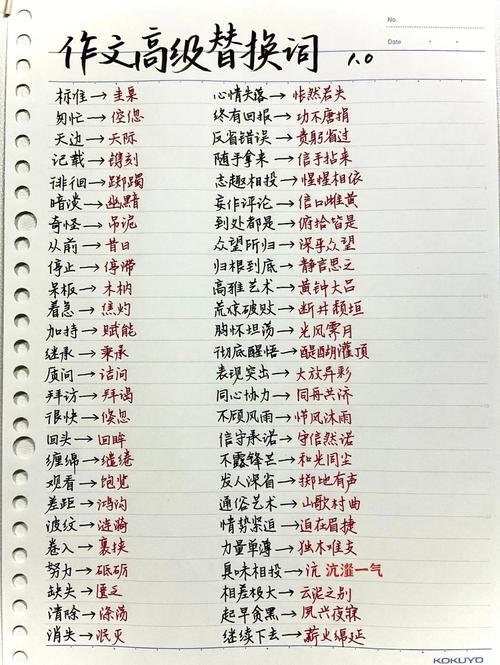 No.
Date
作文高级替换词 1.0
标准→圭臬
匆忙→倥偬
天边→天际
记载→镌刻
徘徊→踯躅
暗淡→幽黯
奇怪→吊诡
从前→昔日
停止→停滞
呆板→木枘
着急→焦灼
加持→赋能
继承→秉承
质问→诘问
拜访→拜谒
很快→倏忽
回头→回眸
缠绵→缱绻
观看→饱览
差距→鸿沟
波纹→涟漪
卷入→裹挟
努力→砥砺
缺失→匮乏
清除→涤荡
消失→泯灭
心情失落→怅然若失
终有回报→功不唐捐
反省错误→责躬省过
随手拿来→信手拈来
志趣相投→惺惺相依
妄作评论→信口雌黄
到处都是→俯拾皆是
众望所归→深孚众望
归根到底→静言思之
高雅艺术→黄钟大吕
荒凉破败→断井颓垣
胸怀坦荡→光风霁月
彻底醒悟→醍醐灌顶
表现突出→大放异彩
同心协力→同舟共济
不顾风雨→栉风沐雨
信守承诺→守信然诺
不露锋芒→和光同尘
发人深省→掷地有声
通俗艺术→山歌村曲
情势紧迫→迫在眉捷
力量单薄→独木难支
臭味相投→沆 沆瀣一气
相差极大→云泥之别
起早贪黑→夙兴夜寐
继续下去→薪火绵延
KOKUYO